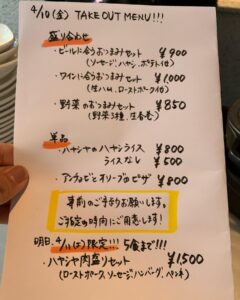 4/10(金) TAKE OUT MENU!!!
盛り合わせ
・ビールに合うおつまみセット ¥900
(ソーセージ、ハヤシ、ポテト付)
・ワインに合うおつまみセット ¥1,000
(生ハム、ローストポーク付)
・野菜のおつまみセット ¥850
(野菜3種、生春巻)
単品
・ハヤシヤのハヤシライス ¥800
ライスなし ¥500
・アンチョビとオリーブのピザ ¥800
事前のご予約お願いします。
ご指定の時間にご用意します!
明日、4/11(土)限定!!! 5食まで!!!
・ハヤシヤ肉盛りセット ¥1,500
(ローストポーク、ソーセージ、ハンバーグ、)